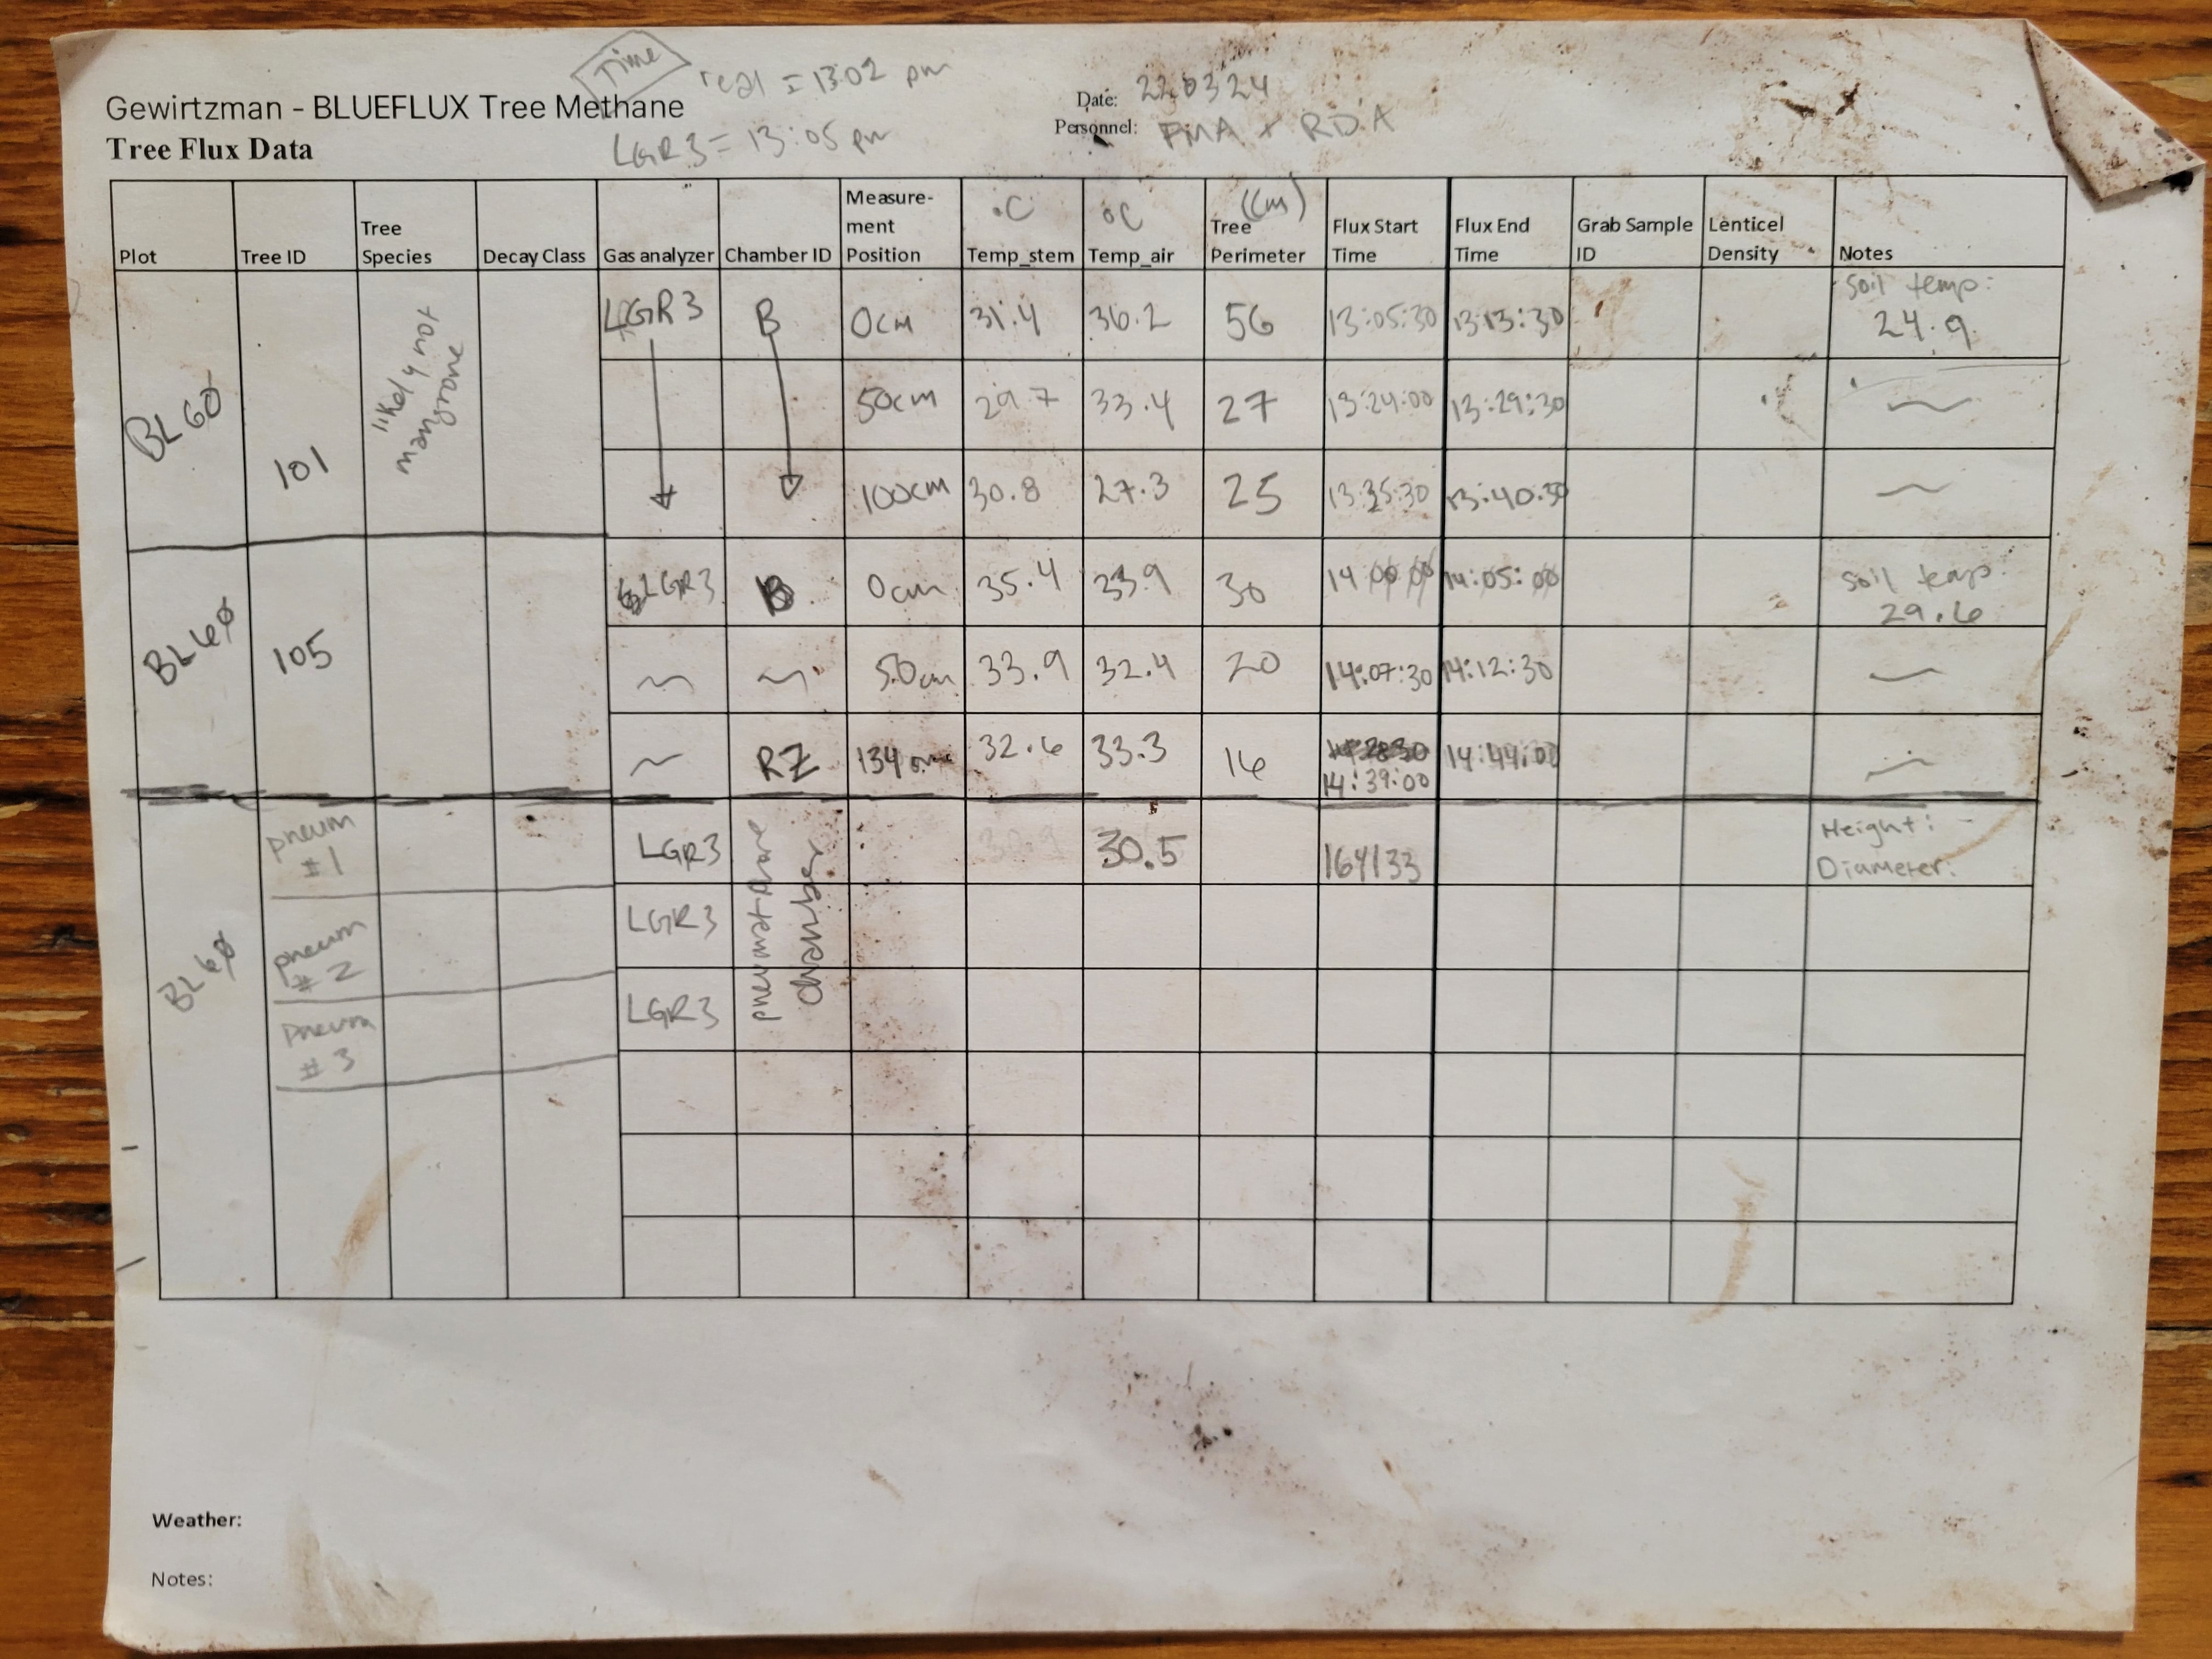 Gewirtzman - BLUEFLUX Tree Methane
Tree Flux Data
Time real = 13:02 pm
LGR3 = 13:05 pm
Date: 220324
Personnel:
°C °C (cm)
Plot Tree ID Tree Species Decay Class Gas analyzer Chamber ID Measure-ment Position Temp_stem Temp_air Tree Perimeter Flux Start Time Flux End Time Grab Sample ID Lenticel Density Notes
BL60 101 LGR3 B 0cm 31.4 30.2 56 13:05:30 13:13:30 soil temp: 24.9
likely not mangrove
50cm 29.7 33.4 27 13:24:00 13:29:30 ~
100cm 30.8 27.3 25 13:35:30 13:40:30 ~
BL60 105 LGR3 B 0cm 35.4 33.9 30 14:00:00 14:05:00 soil temp: 29.6
~ ~ 50cm 33.9 32.4 20 14:07:30 14:12:30 ~
~ RZ 134cm 32.6 33.3 16 14:39:00 14:44:00 ~
BL60 pneum #1 LGR3 30.5 164133 Height:
Diameter:
pneum #2 LGR3
pneum #3 LGR3
Weather:
Notes: